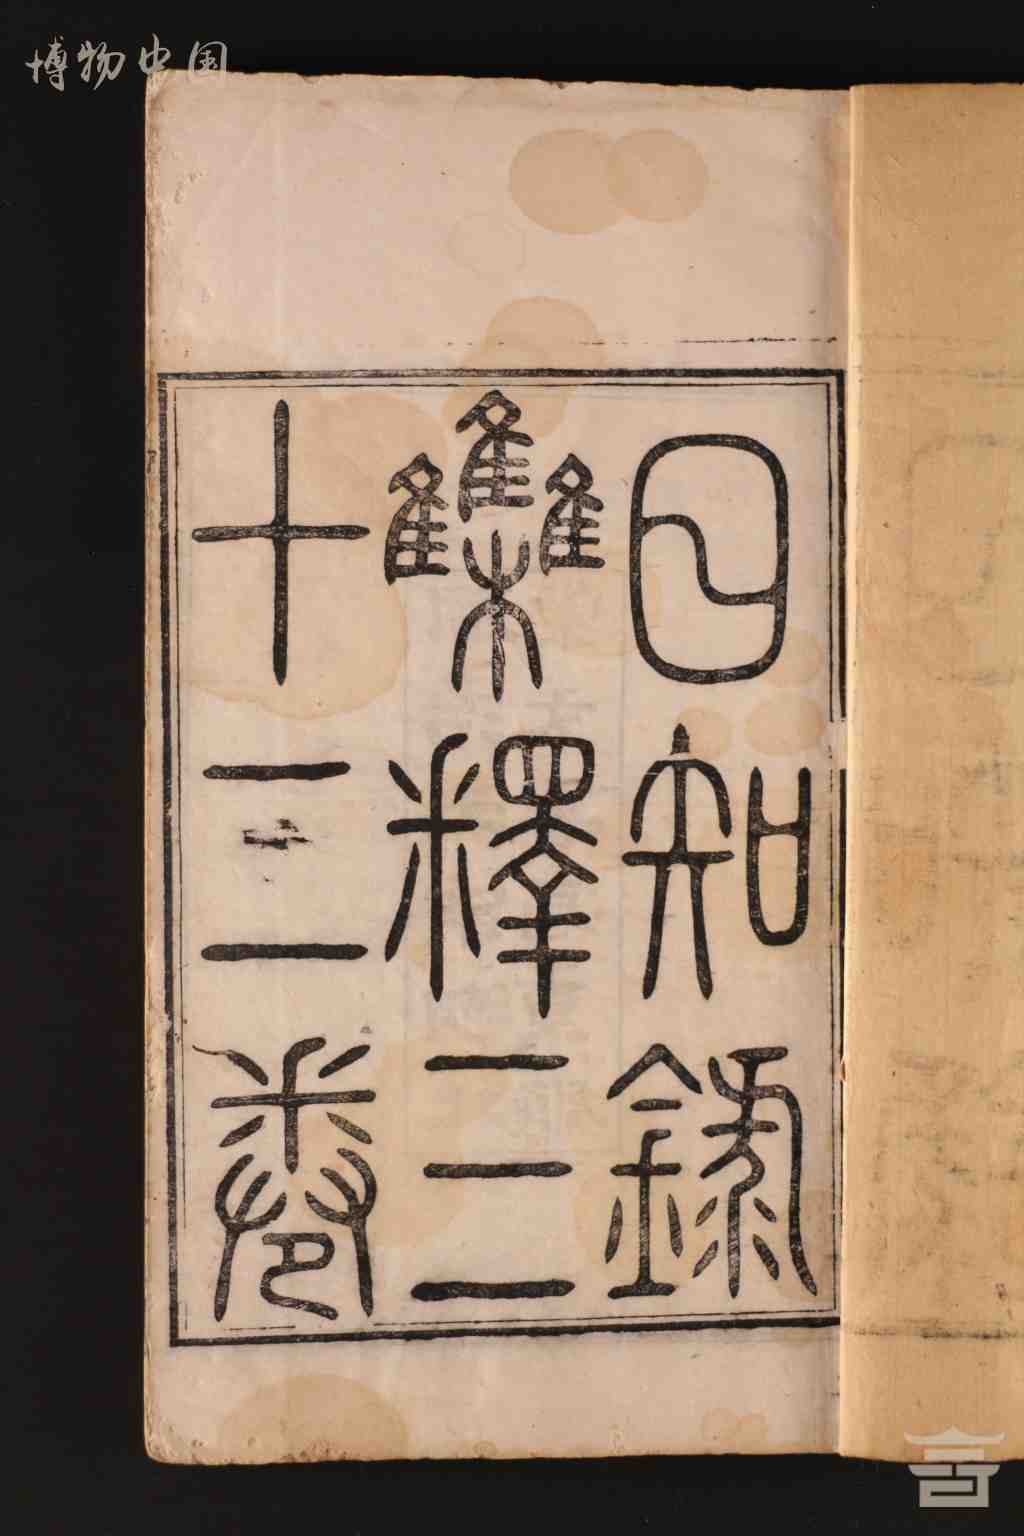 博物中国
日知錄
集釋三
十二卷